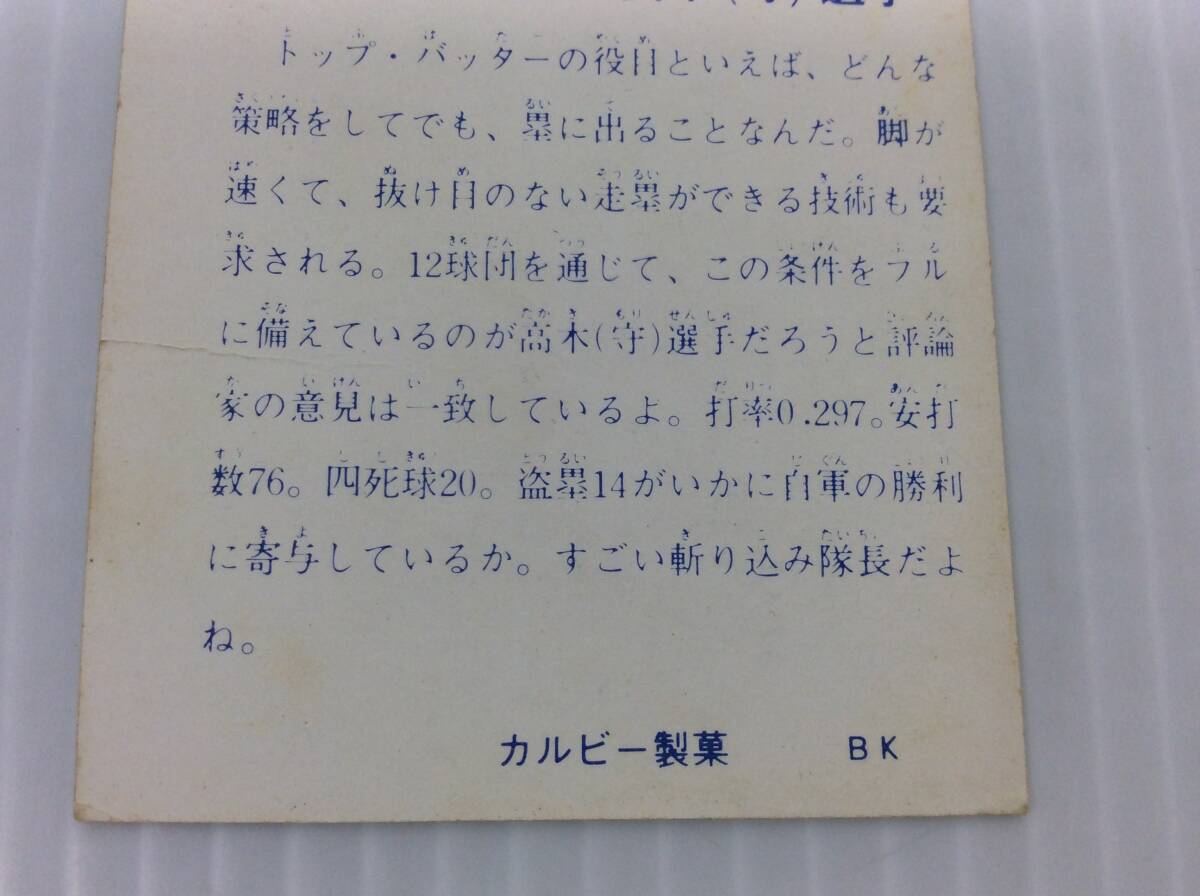 (守)選手
トップ・バッターの役目といえば、どんな
策略をしてでも、塁に出ることなんだ。脚が
速くて、抜け目のない走塁ができる技術も要
求される。12球団を通じて、この条件をフル
に備えているのが高木(守)選手だろうと評論
家の意見は一致しているよ。打率0.297。安打
数76。四死球20。盗塁14がいかに自軍の勝利
に寄与しているか。すごい斬り込み隊長だよ
ね。
カルビー製菓 BK